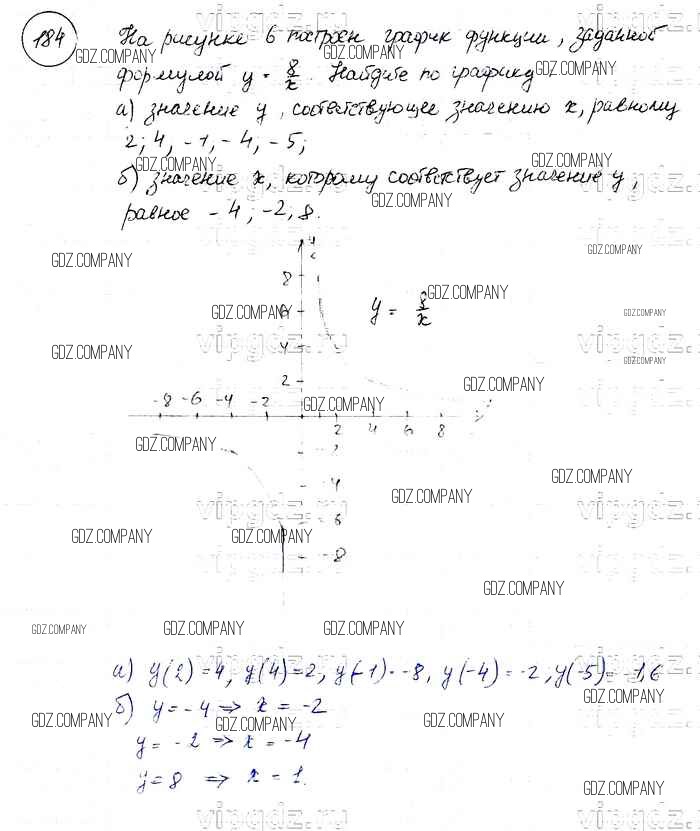 184
На рисунке 6 построен график функции, заданной
формулой y = 8/x. Найдите по графику
а) значение y, соответствующее значению x, равному
2; 4, -1, -4, -5;
б) значение x, которому соответствует значение y,
равное -4; -2, 8.
y
8
6
y = 8/x
4
2
-8 -6 -4 -2
2 4 6 8 x
-4
-6
-8
а) y(2)=4, y(4)=2, y(-1)=-8, y(-4)=-2, y(-5)=-1,6
б) y=-4 ⇒ x=-2
y=-2 ⇒ x=-4
y=8 ⇒ x=1.
GDZ.COMPANY
vipgdz.ru